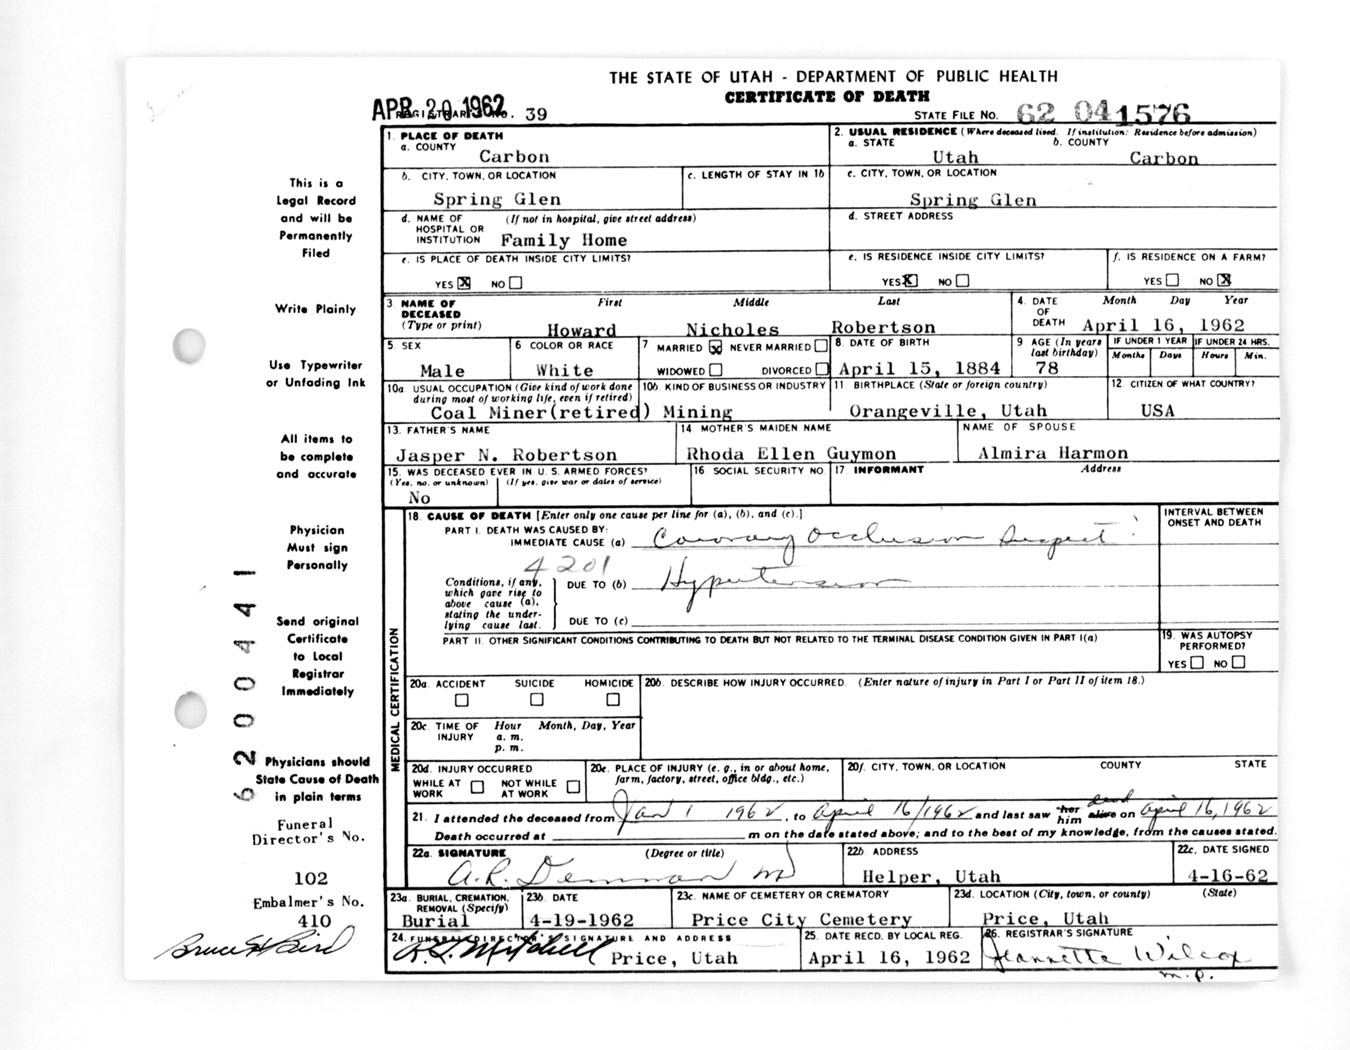 THE STATE OF UTAH - DEPARTMENT OF PUBLIC HEALTH
CERTIFICATE OF DEATH
APR 20 1962
REGISTRAR'S NO. 39
STATE FILE NO. 62 04 1576
1. PLACE OF DEATH
a. COUNTY
Carbon
2. USUAL RESIDENCE (Where deceased lived. If institution: Residence before admission)
a. STATE b. COUNTY
Utah Carbon
b. CITY, TOWN, OR LOCATION
Spring Glen
c. LENGTH OF STAY IN 1b
c. CITY, TOWN, OR LOCATION
Spring Glen
d. NAME OF HOSPITAL OR INSTITUTION (If not in hospital, give street address)
Family Home
d. STREET ADDRESS
e. IS PLACE OF DEATH INSIDE CITY LIMITS?
YES X NO
e. IS RESIDENCE INSIDE CITY LIMITS?
YES X NO
f. IS RESIDENCE ON A FARM?
YES NO X
3 NAME OF DECEASED (Type or print)
First Middle Last
Howard Nicholes Robertson
4. DATE OF DEATH
Month Day Year
April 16, 1962
5. SEX
Male
6 COLOR OR RACE
White
7 MARRIED X NEVER MARRIED
WIDOWED DIVORCED
8. DATE OF BIRTH
April 15, 1884
9 AGE (In years last birthday)
78
IF UNDER 1 YEAR
Months Days
IF UNDER 24 HRS.
Hours Min.
10a. USUAL OCCUPATION (Give kind of work done during most of working life, even if retired)
Coal Miner(retired)
10b. KIND OF BUSINESS OR INDUSTRY
Mining
11. BIRTHPLACE (State or foreign country)
Orangeville, Utah
12. CITIZEN OF WHAT COUNTRY?
USA
13. FATHER'S NAME
Jasper N. Robertson
14 MOTHER'S MAIDEN NAME
Rhoda Ellen Guymon
NAME OF SPOUSE
Almira Harmon
15. WAS DECEASED EVER IN U.S. ARMED FORCES?
(Yes, no, or unknown) (If yes, give war or dates of service)
No
16 SOCIAL SECURITY NO.
17 INFORMANT Address
MEDICAL CERTIFICATION
18. CAUSE OF DEATH [Enter only one cause per line for (a), (b), and (c).]
INTERVAL BETWEEN ONSET AND DEATH
PART I. DEATH WAS CAUSED BY:
IMMEDIATE CAUSE (a) Coronary Occlusion Suspect
4201
Conditions, if any, which gave rise to above cause (a), stating the underlying cause last.
DUE TO (b) Hypertension
DUE TO (c)
PART II. OTHER SIGNIFICANT CONDITIONS CONTRIBUTING TO DEATH BUT NOT RELATED TO THE TERMINAL DISEASE CONDITION GIVEN IN PART I(a)
19. WAS AUTOPSY PERFORMED?
YES NO
20a. ACCIDENT SUICIDE HOMICIDE
20b. DESCRIBE HOW INJURY OCCURRED. (Enter nature of injury in Part I or Part II of item 18.)
20c. TIME OF INJURY Hour Month, Day, Year
a. m.
p. m.
20d. INJURY OCCURRED
WHILE AT WORK NOT WHILE AT WORK
20e. PLACE OF INJURY (e. g., in or about home, farm, factory, street, office bldg., etc.)
20f. CITY, TOWN, OR LOCATION COUNTY STATE
21. I attended the deceased from Jan 1 1962, to April 16/1962 and last saw her him alive dead on April 16, 1962
Death occurred at m on the date stated above; and to the best of my knowledge, from the causes stated.
22a. SIGNATURE (Degree or title)
A.R. Demman MD
22b ADDRESS
Helper, Utah
22c. DATE SIGNED
4-16-62
23a. BURIAL, CREMATION, REMOVAL (Specify)
Burial
23b. DATE
4-19-1962
23c. NAME OF CEMETERY OR CREMATORY
Price City Cemetery
23d. LOCATION (City, town, or county) (State)
Price, Utah
24. FUNERAL DIRECTOR'S SIGNATURE AND ADDRESS
Mitchell Price, Utah
25. DATE RECD. BY LOCAL REG.
April 16, 1962
26. REGISTRAR'S SIGNATURE
Jeannette Wilcox
m.p.
This is a
Legal Record
and will be
Permanently
Filed
Write Plainly
Use Typewriter
or Unfading Ink
All items to
be complete
and accurate
Physician
Must sign
Personally
Send original
Certificate
to Local
Registrar
Immediately
Physicians should
State Cause of Death
in plain terms
6200441
Funeral
Director's No.
102
Embalmer's No.
410
Bruce H Baird